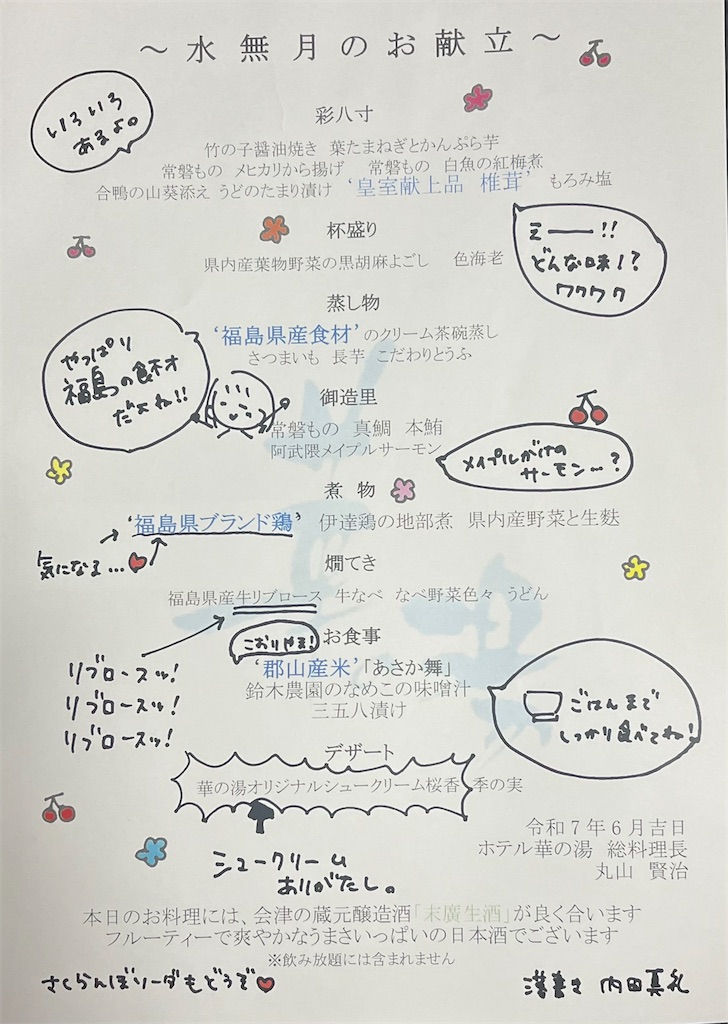 ～水無月のお献立～
いろいろ
あるよ。
彩八寸
竹の子醤油焼き 葉たまねぎとかんぷら芋
常磐もの メヒカリから揚げ 常磐もの 白魚の紅梅煮
合鴨の山葵添え うどのたまり漬け ‘皇室献上品 椎茸’ もろみ塩
杯盛り
県内産葉物野菜の黒胡麻よごし 色海老
え――!!
どんな味!?
ワクワク
蒸し物
‘福島県産食材’のクリーム茶碗蒸し
さつまいも 長芋 こだわりとうふ
やっぱり
福島の食材
だよね!!
御造里
常磐もの 真鯛 本鮪
阿武隈メイプルサーモン
メイプルがけの
サーモン…?
煮物
‘福島県ブランド鶏’ 伊達鶏の地部煮 県内産野菜と生麩
気になる…
燗てき
福島県産牛リブロース 牛なべ なべ野菜色々 うどん
リブロースッ!
リブロースッ!
リブロースッ!
こおりやま!
お食事
‘郡山産米’「あさか舞」
鈴木農園のなめこの味噌汁
三五八漬け
ごはんまで
しっかり食べてね!
デザート
華の湯オリジナルシュークリーム桜香 季の実
シュークリーム
ありがたし。
令和7年6月吉日
ホテル華の湯 総料理長
丸山 賢治
本日のお料理には、会津の蔵元醸造酒「末廣生酒」が良く合います
フルーティーで爽やかなうまさいっぱいの日本酒でございます
※飲み放題には含まれません
さくらんぼソーダもどうぞ
落書き 内田真礼